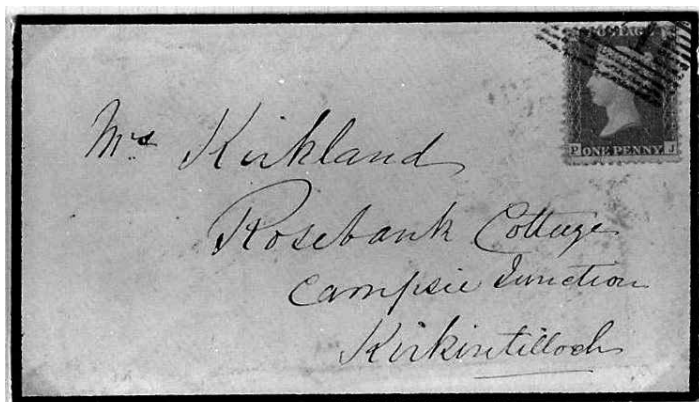 POSTAGE
P ONE PENNY J
Mrs Kirkland
Rosebank Cottage
Campsie Junction
Kirkintilloch